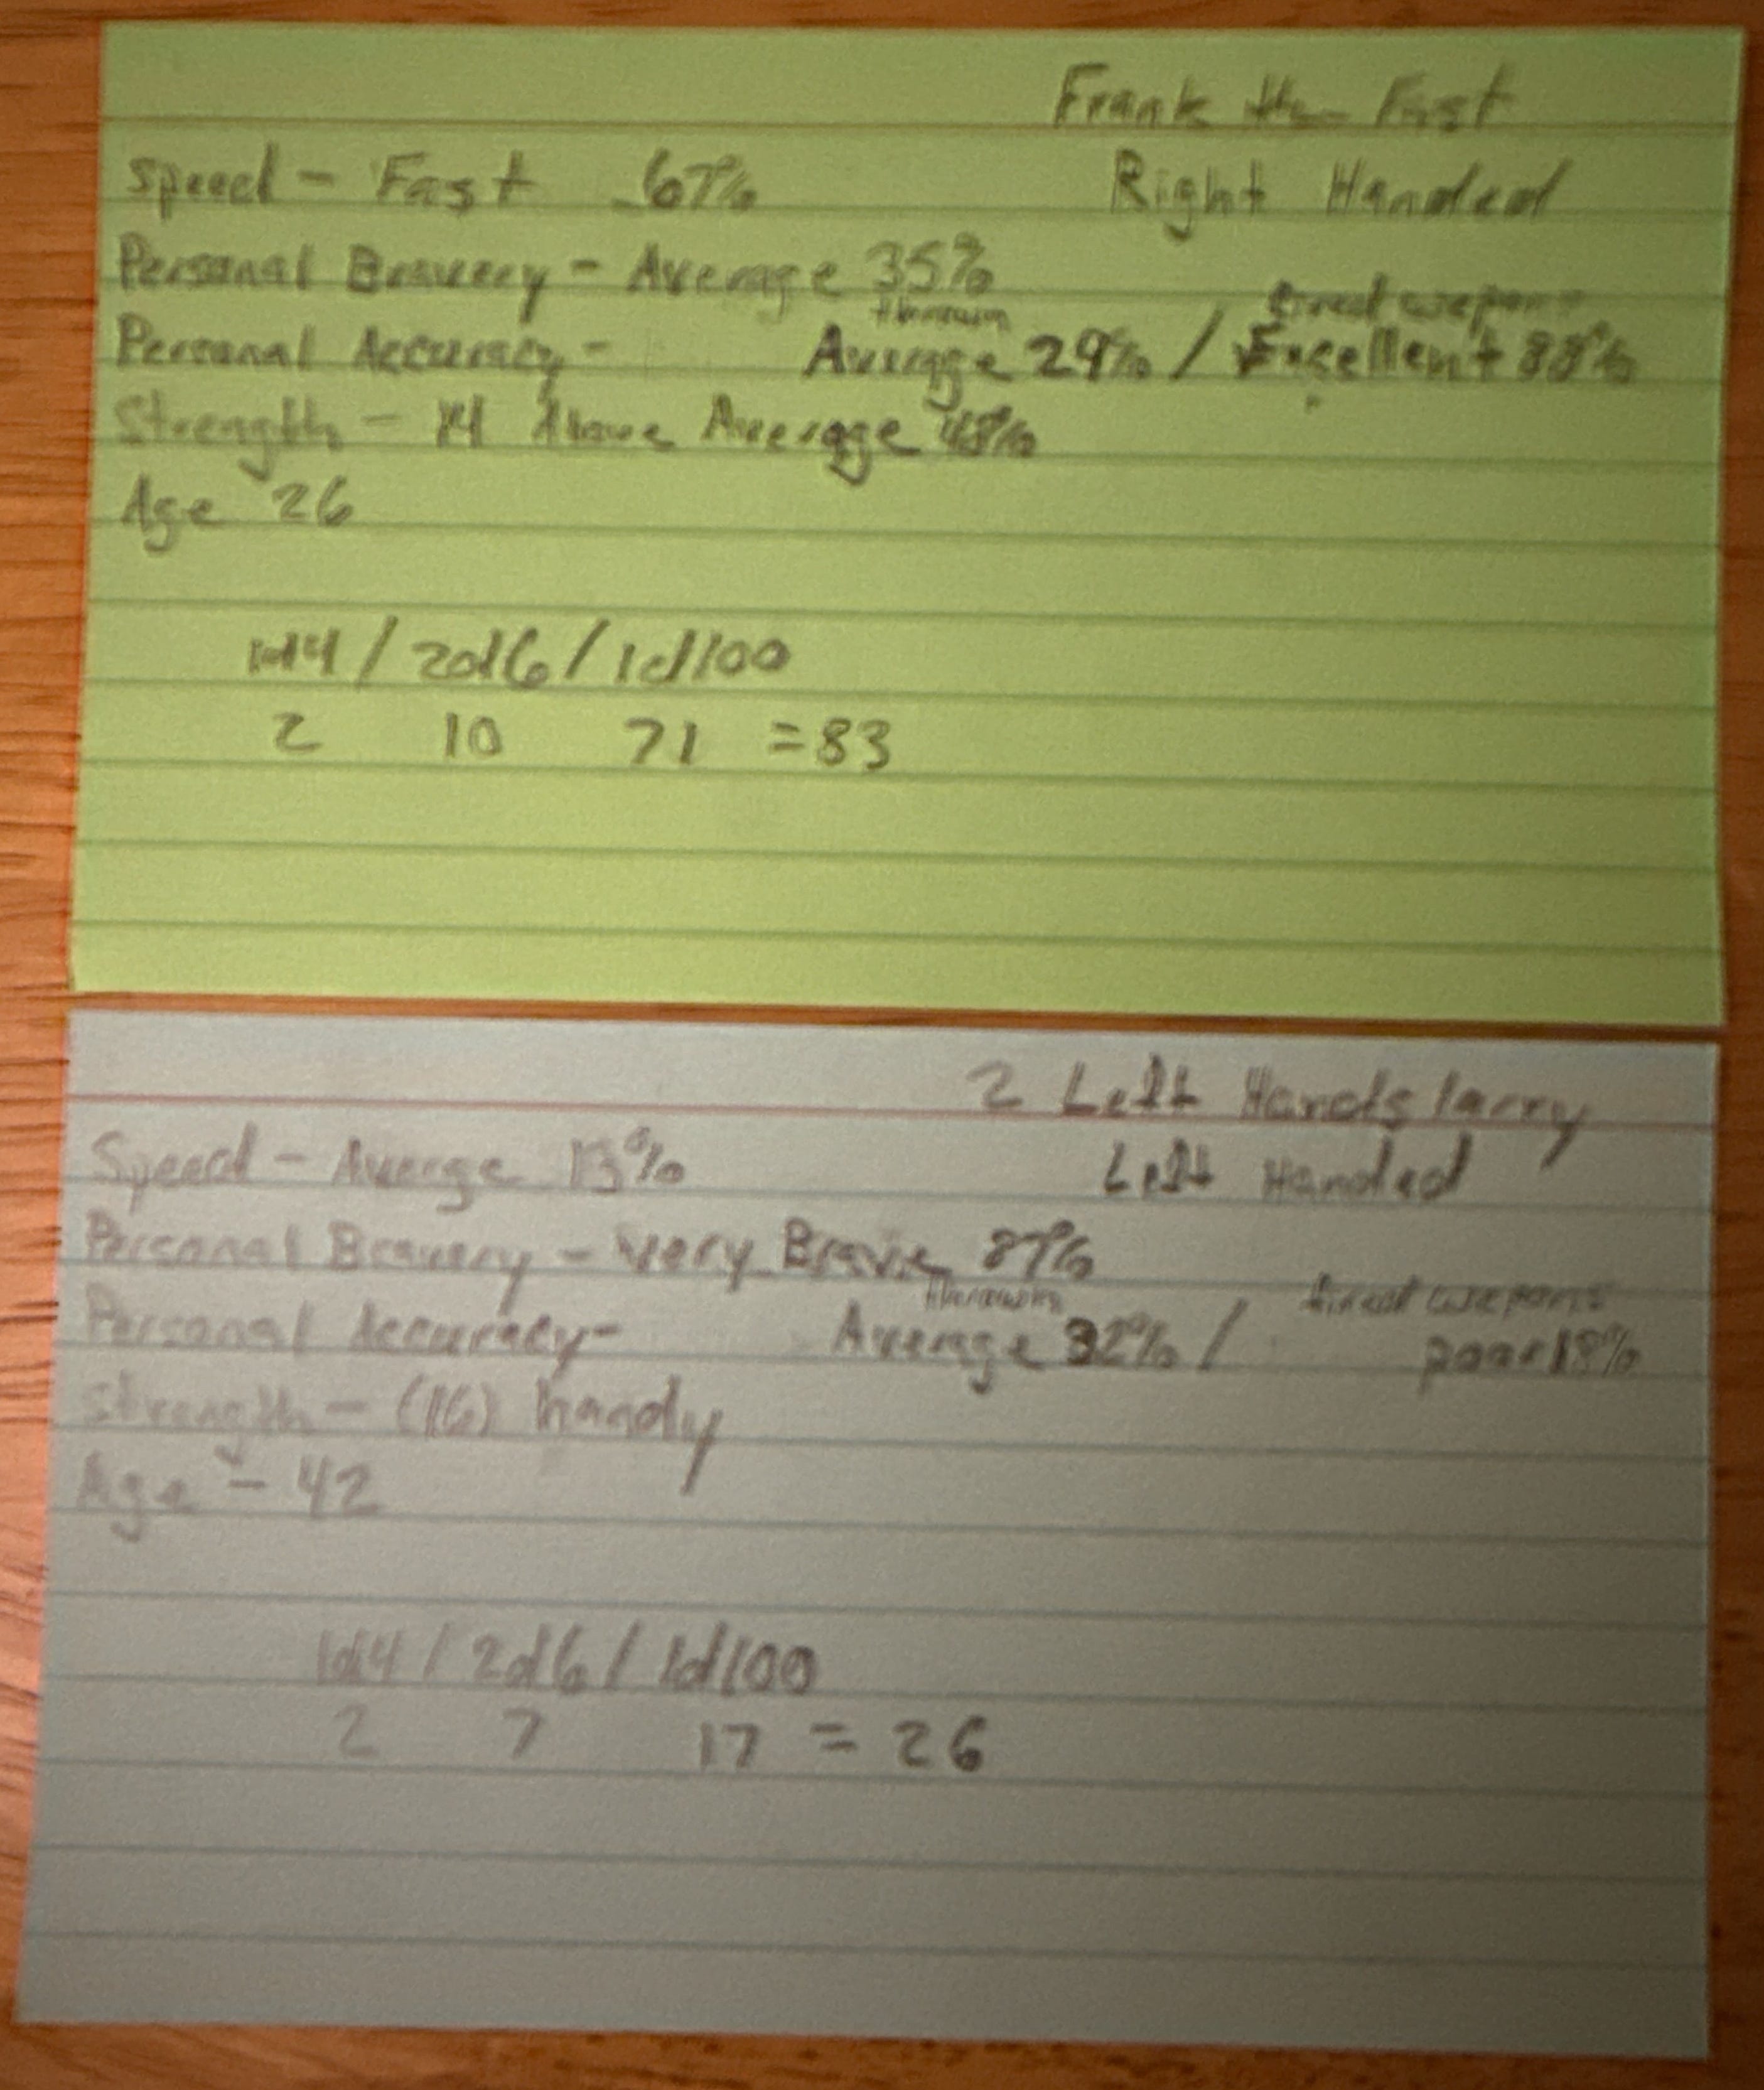 Frank the Fast
Speed - Fast 67%
Right Handed
Personal Bravery - Average 35%
thrown fired weapons
Personal Accuracy - Average 29% / Excellent 88%
Strength - 14 Above Average 48%
Age 26
1d4 / 2d6 / 1d100
2 10 71 = 83
2 Left Hands larry
Speed - Average 13%
Left Handed
Personal Bravery - Very Brave 87%
thrown fired weapons
Personal Accuracy - Average 32% / poor 18%
Strength - (16) handy
Age - 42
1d4 / 2d6 / 1d100
2 7 17 = 26